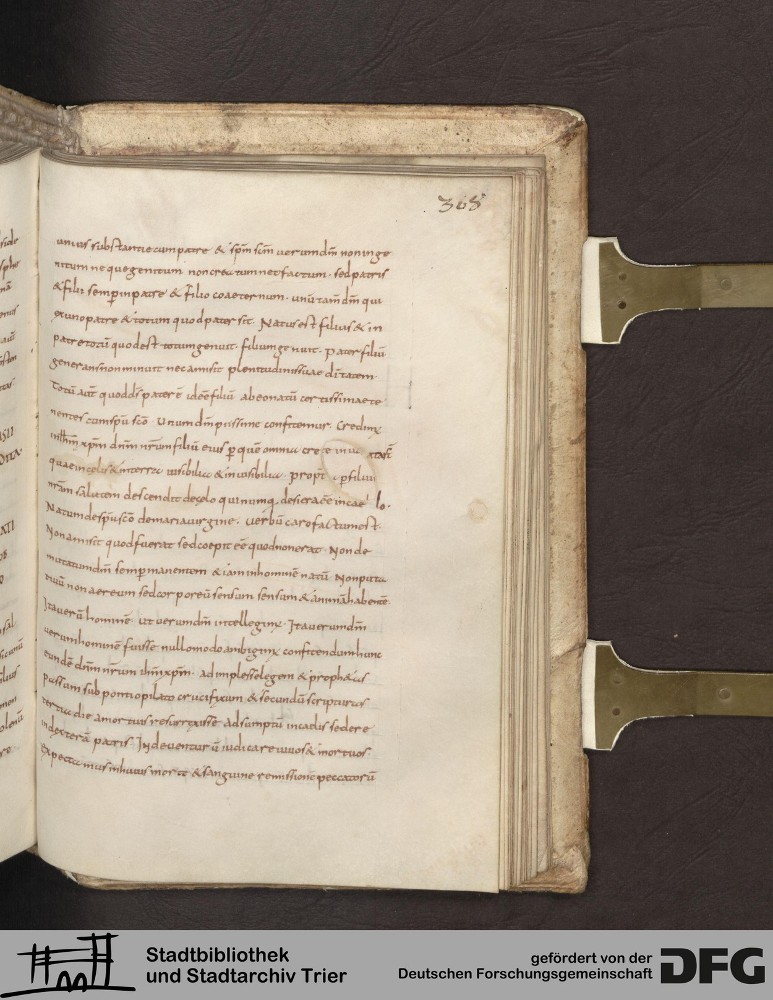 368
unius substantie cum patre & sp̄m scm̄ uerum dm̄ non inge
nitum neque genitum non creatum nec factum. sed patris
& filii semp̄ in patre & filio coaeternum. unū tam̄ dm̄ qui
ex uno patre & totum quod pater sit. Natus est filius & in
patre totū quod est. totum genuit. filium genuit. pater filiū
generans non minuit nec amisit plenitudinis suae di tatem.
Totū aut̄ quod ds̄ pater ē id eē filiū ab eo natū certissimae te
nentes cum sp̄u sc̄o. Unum dm̄ piissime confitemur. Credim;
ihm̄ xp̄m dnm̄ nr̄um filiū eius p̄ quē omnia
quae in celis & in terra uisibilia & inuisibilia. propt̄
nr̄am salutem descendit de celo qui numq; desierat eē in cae lo.
Natum de sp̄u sc̄o de maria uirgine. uerbū caro factum est.
Non amisit quod fuerat sed coepit eē quod non erat. Non de
mutatum dm̄ semp̄ manentem & iam in homine natū. Non puta
tiuū non aereum sed corporeū sensum sensum & animā habentē
Ita uerū hominē. ut uerum dm̄ intellegim;. Ita uerum dm̄
uerum hominē fuisse nullo modo ambigim; confitendum hunc
eundē dnm̄ nr̄um ihm̄ xp̄m. adimplesse legem & proph&as
passum sub pontio pilato crucifixum & secundū scripturas
tertia die a mortuis resurrexisse. adsumptū in caelis sedere
in dexterā patris. Inde uenturū iudicare uiuos & mortuos.
Expectamus in huius morte & sanguine remissionē peccatorū
Stadtbibliothek
und Stadtarchiv Trier
gefördert von der
Deutschen Forschungsgemeinschaft
DFG